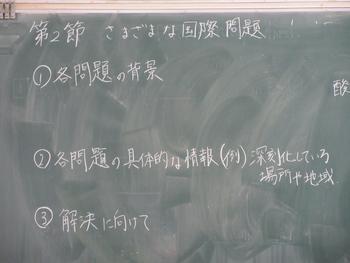 第2節 さまざまな国際問題
①各問題の背景
酸
②各問題の具体的な情報(例)深刻化している
場所や地域
③解決に向けて